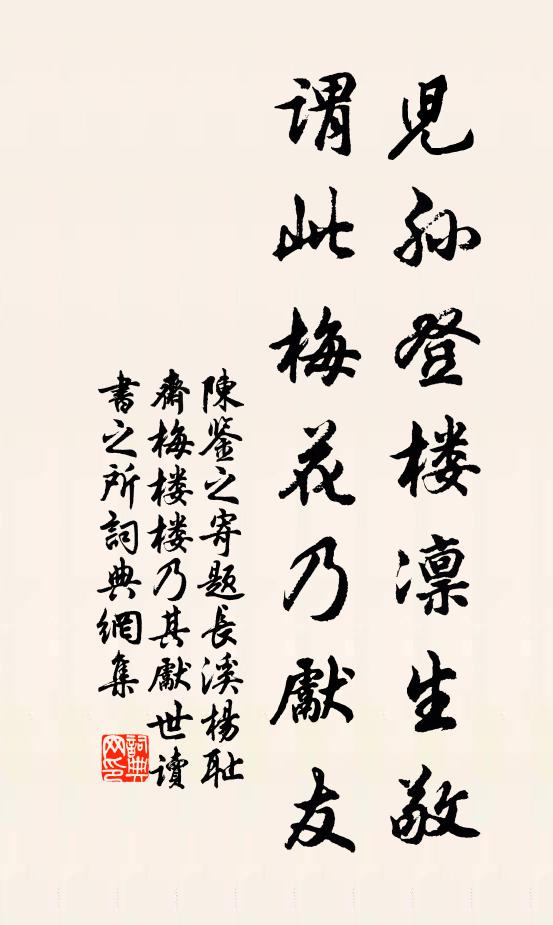 児孙登楼凛生敬
谓此梅花乃献友
陳鉴之寄题長溪楊耻
齋梅楼楼乃其献世读
書之所詞典網集
詞典網印